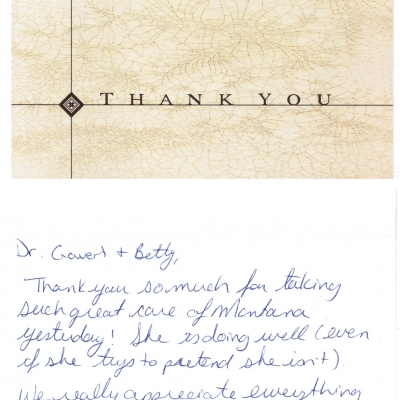 THANK YOU
Dr. Gavert + Betty,
Thank you so much for taking
such great care of Montana
yesterday! She is doing well (even
if she trys to pretend she isn't).
We really appreciate everything